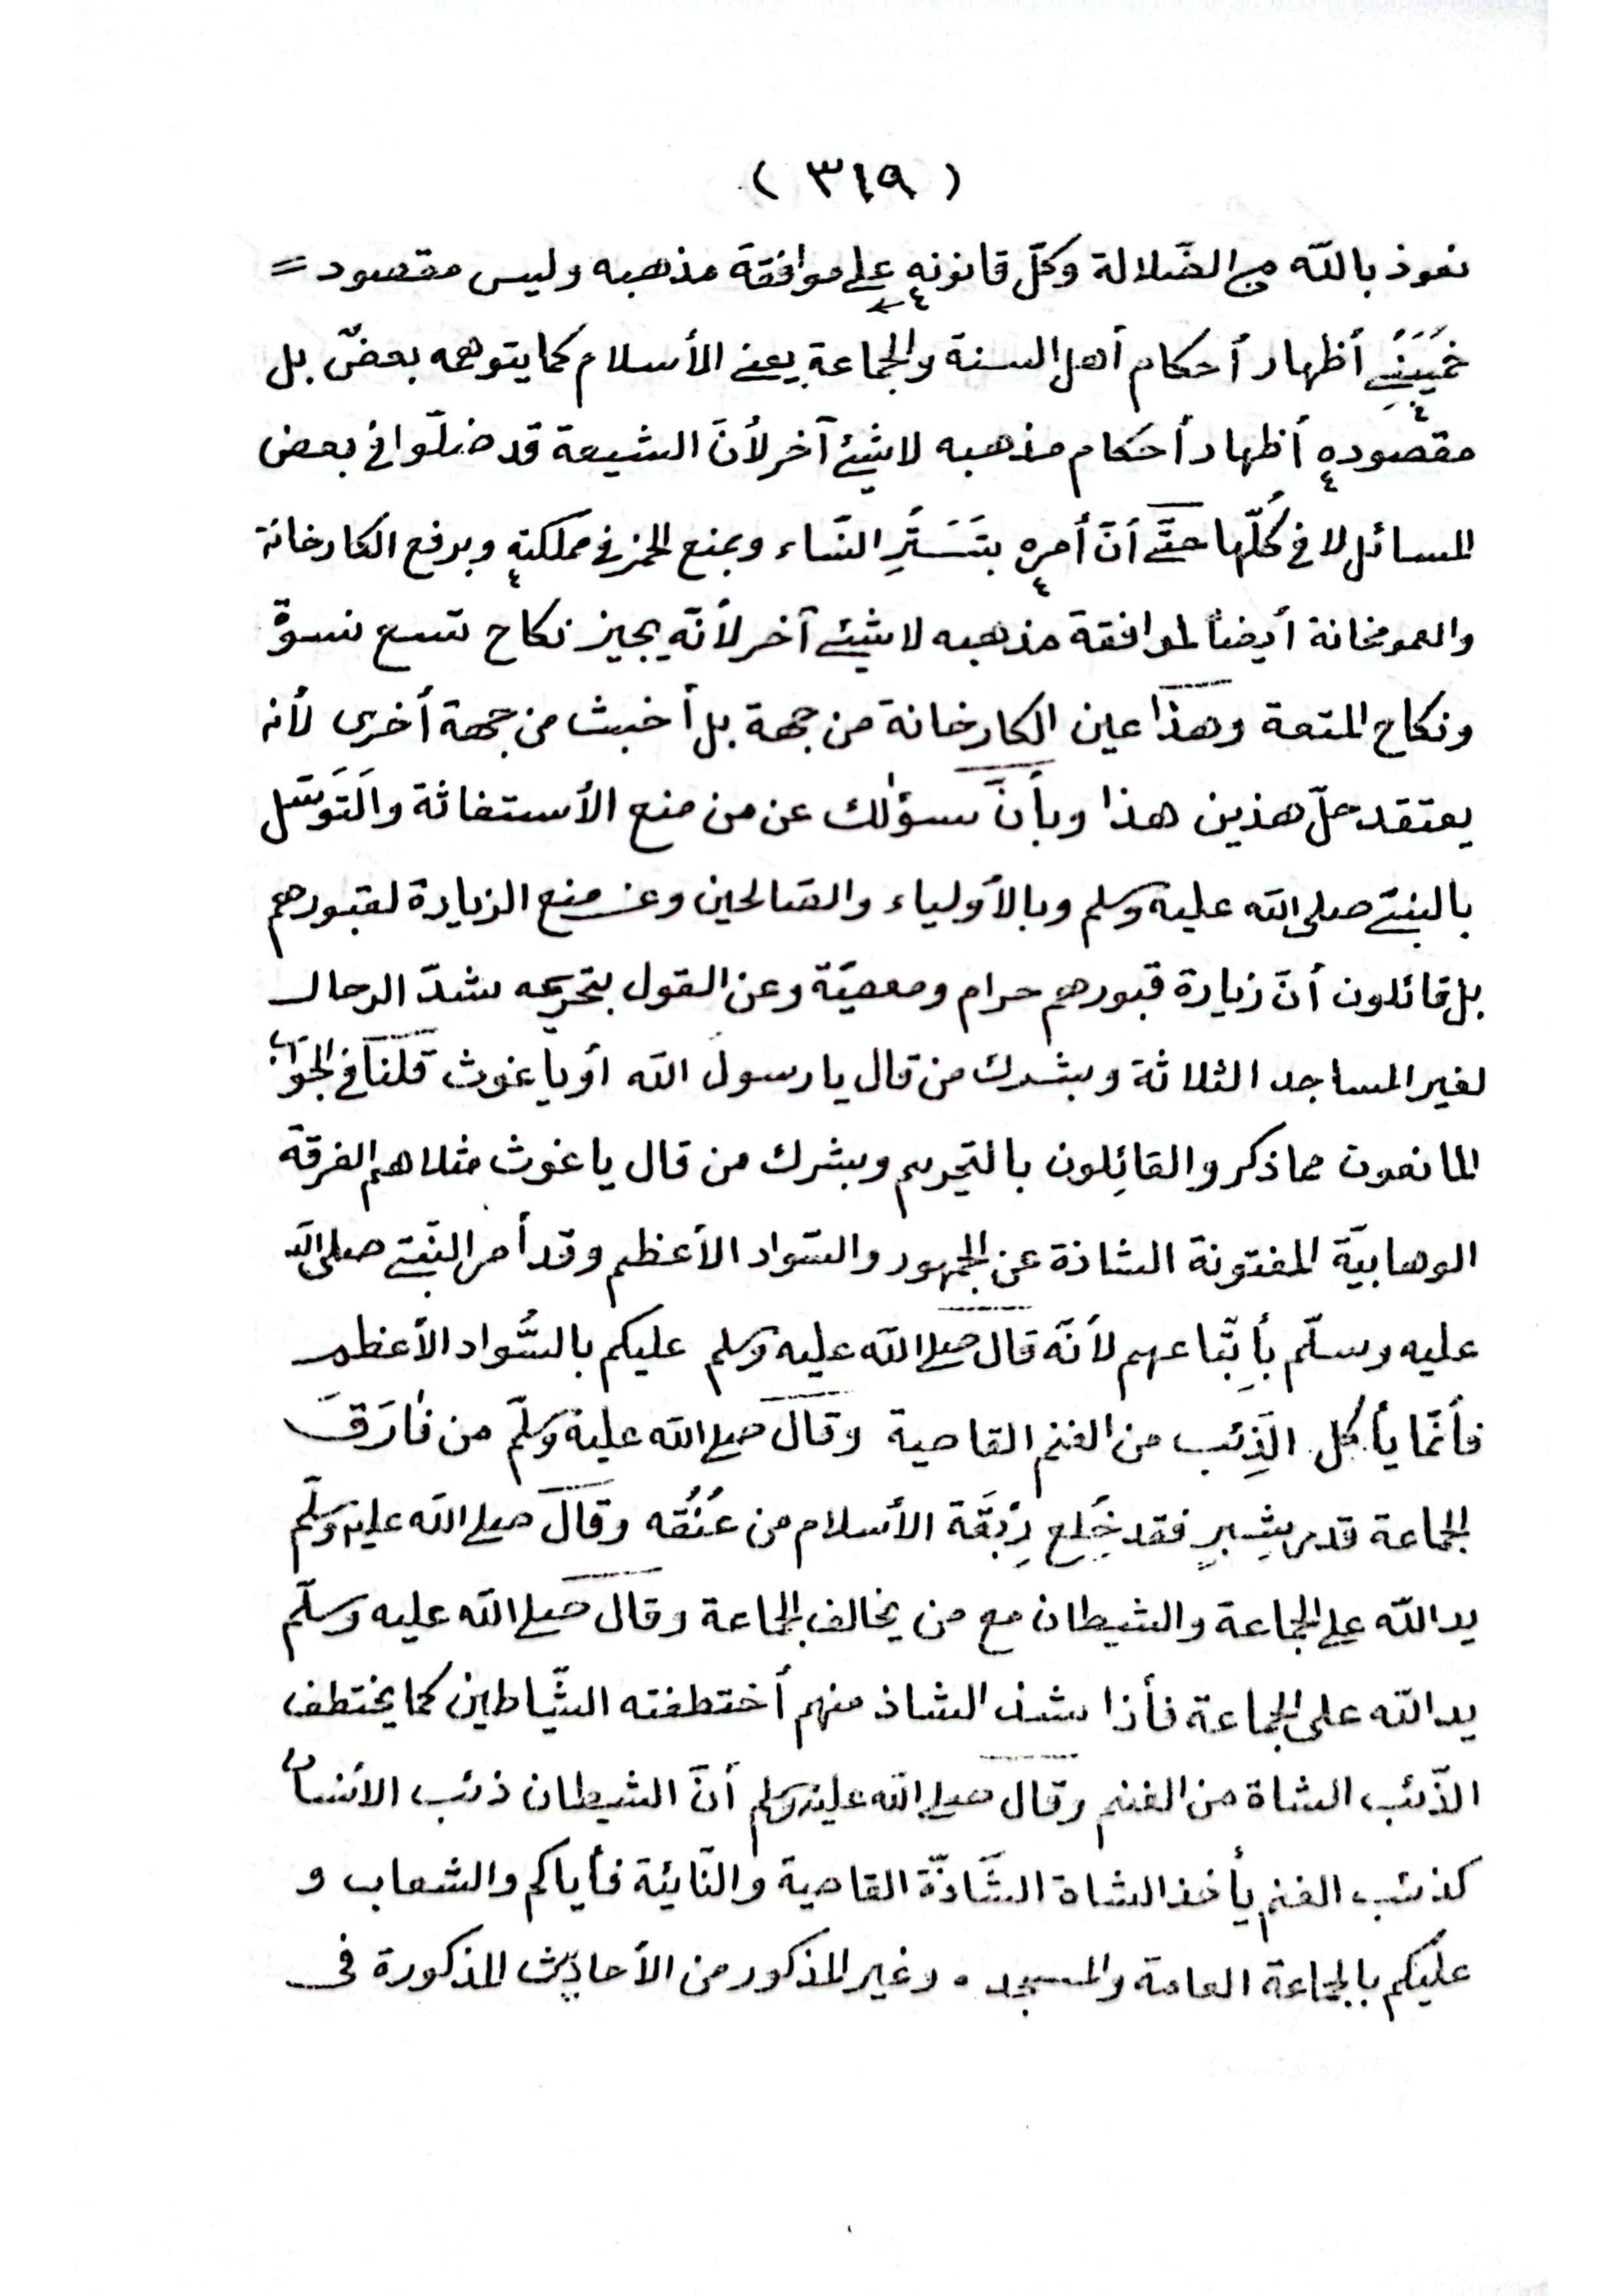 ( ٣١٩ )
نعوذ بالله من الضّلالة وكلّ قانونه على موافقة مذهبه وليس مقصود =
خُمَيَيْنِي أظهار أحكام أهل السنة والجماعة يعنى الأسلام كما يتوهمه بعضٌ بل
مقصوده أظهار أحكام مذهبه لا شيئ آخر لأنّ الشيعة قد ضلّوا فى بعض
المسائل لا فى كُلّها حتَّى أنّ أمره بتَسَتُّرِ النّساء وبمنع الخمر فى مملكته وبرفع الكارخانة
والعمومخانة أيضاً لموافقة مذهبه لا شيئ آخر لأنّه يجيز نكاح تسع نسوةٌ
ونكاح المتعة وهذا عين الكارخانة من جهة بل أخبث من جهة أخرى لأنه
يعتقد حلّ هذين هذا وبأنّ سؤالك عن من منع الأستغاثة والتَوَسّل
بالنبىّ صلى الله عليه وسلم وبالأولياء والصّالحين وعن منع الزيارة لقبورهم
بل قائلون أنّ زيارة قبورهم حرام ومعصيّة وعن القول بتحريمه شدّ الرحال
لغير المساجد الثلاثة وبشرك من قال يا رسول الله أو يا غوث قلنا فى الجواب
المانعون مما ذكر والقائِلون بالتحريم وبشرك من قال يا غوث مثلا هم الفرقة
الوهابيّة المفتونة الشاذة عن الجمهور والسّواد الأعظم وقد أمر النّبىّ صلى الله
عليه وسلّم بأتِبّاعهم لأنّه قال صلى الله عليه وسلم عليكم بالسُّواد الأعظم
فأنّما يأكل الذِئب من الغنم القاصية وقال صلى الله عليه وسلّم من فارَقَ
الجماعة قدر شِبرٍ فقد خُلِع رِبْقَة الأسلام من عُنُقه وقال صلى الله عليه وسلّم
يد الله على الجماعة والشيطان مع من يخالف الجماعة وقال صلى الله عليه وسلّم
يد الله على الجماعة فأذا شذ الشاذ منهم أختطفته الشّياطين كما يختطف
الذّئب الشاة من الغنم وقال صلى الله عليه وسلم أنّ الشيطان ذئب الأنسان
كذئب الغنم يأخذ الشاة الشّاذّة القاصية والنّائية فأياكم والشعاب و
عليكم بالجماعة العامة والمسجد . وغير المذكور من الأحاديث المذكورة فى